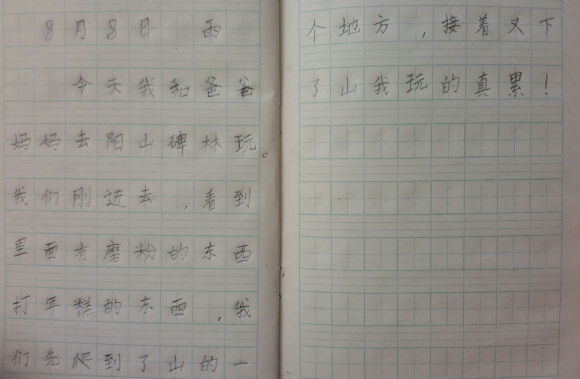 8月8日 雨
今天我和爸爸
妈妈去阳山碑林玩。
我们刚进去,看到
里面有磨粉的东西
打年糕的东西。我
们先爬到了山的一
个地方,接着又下
了山我玩的真累!